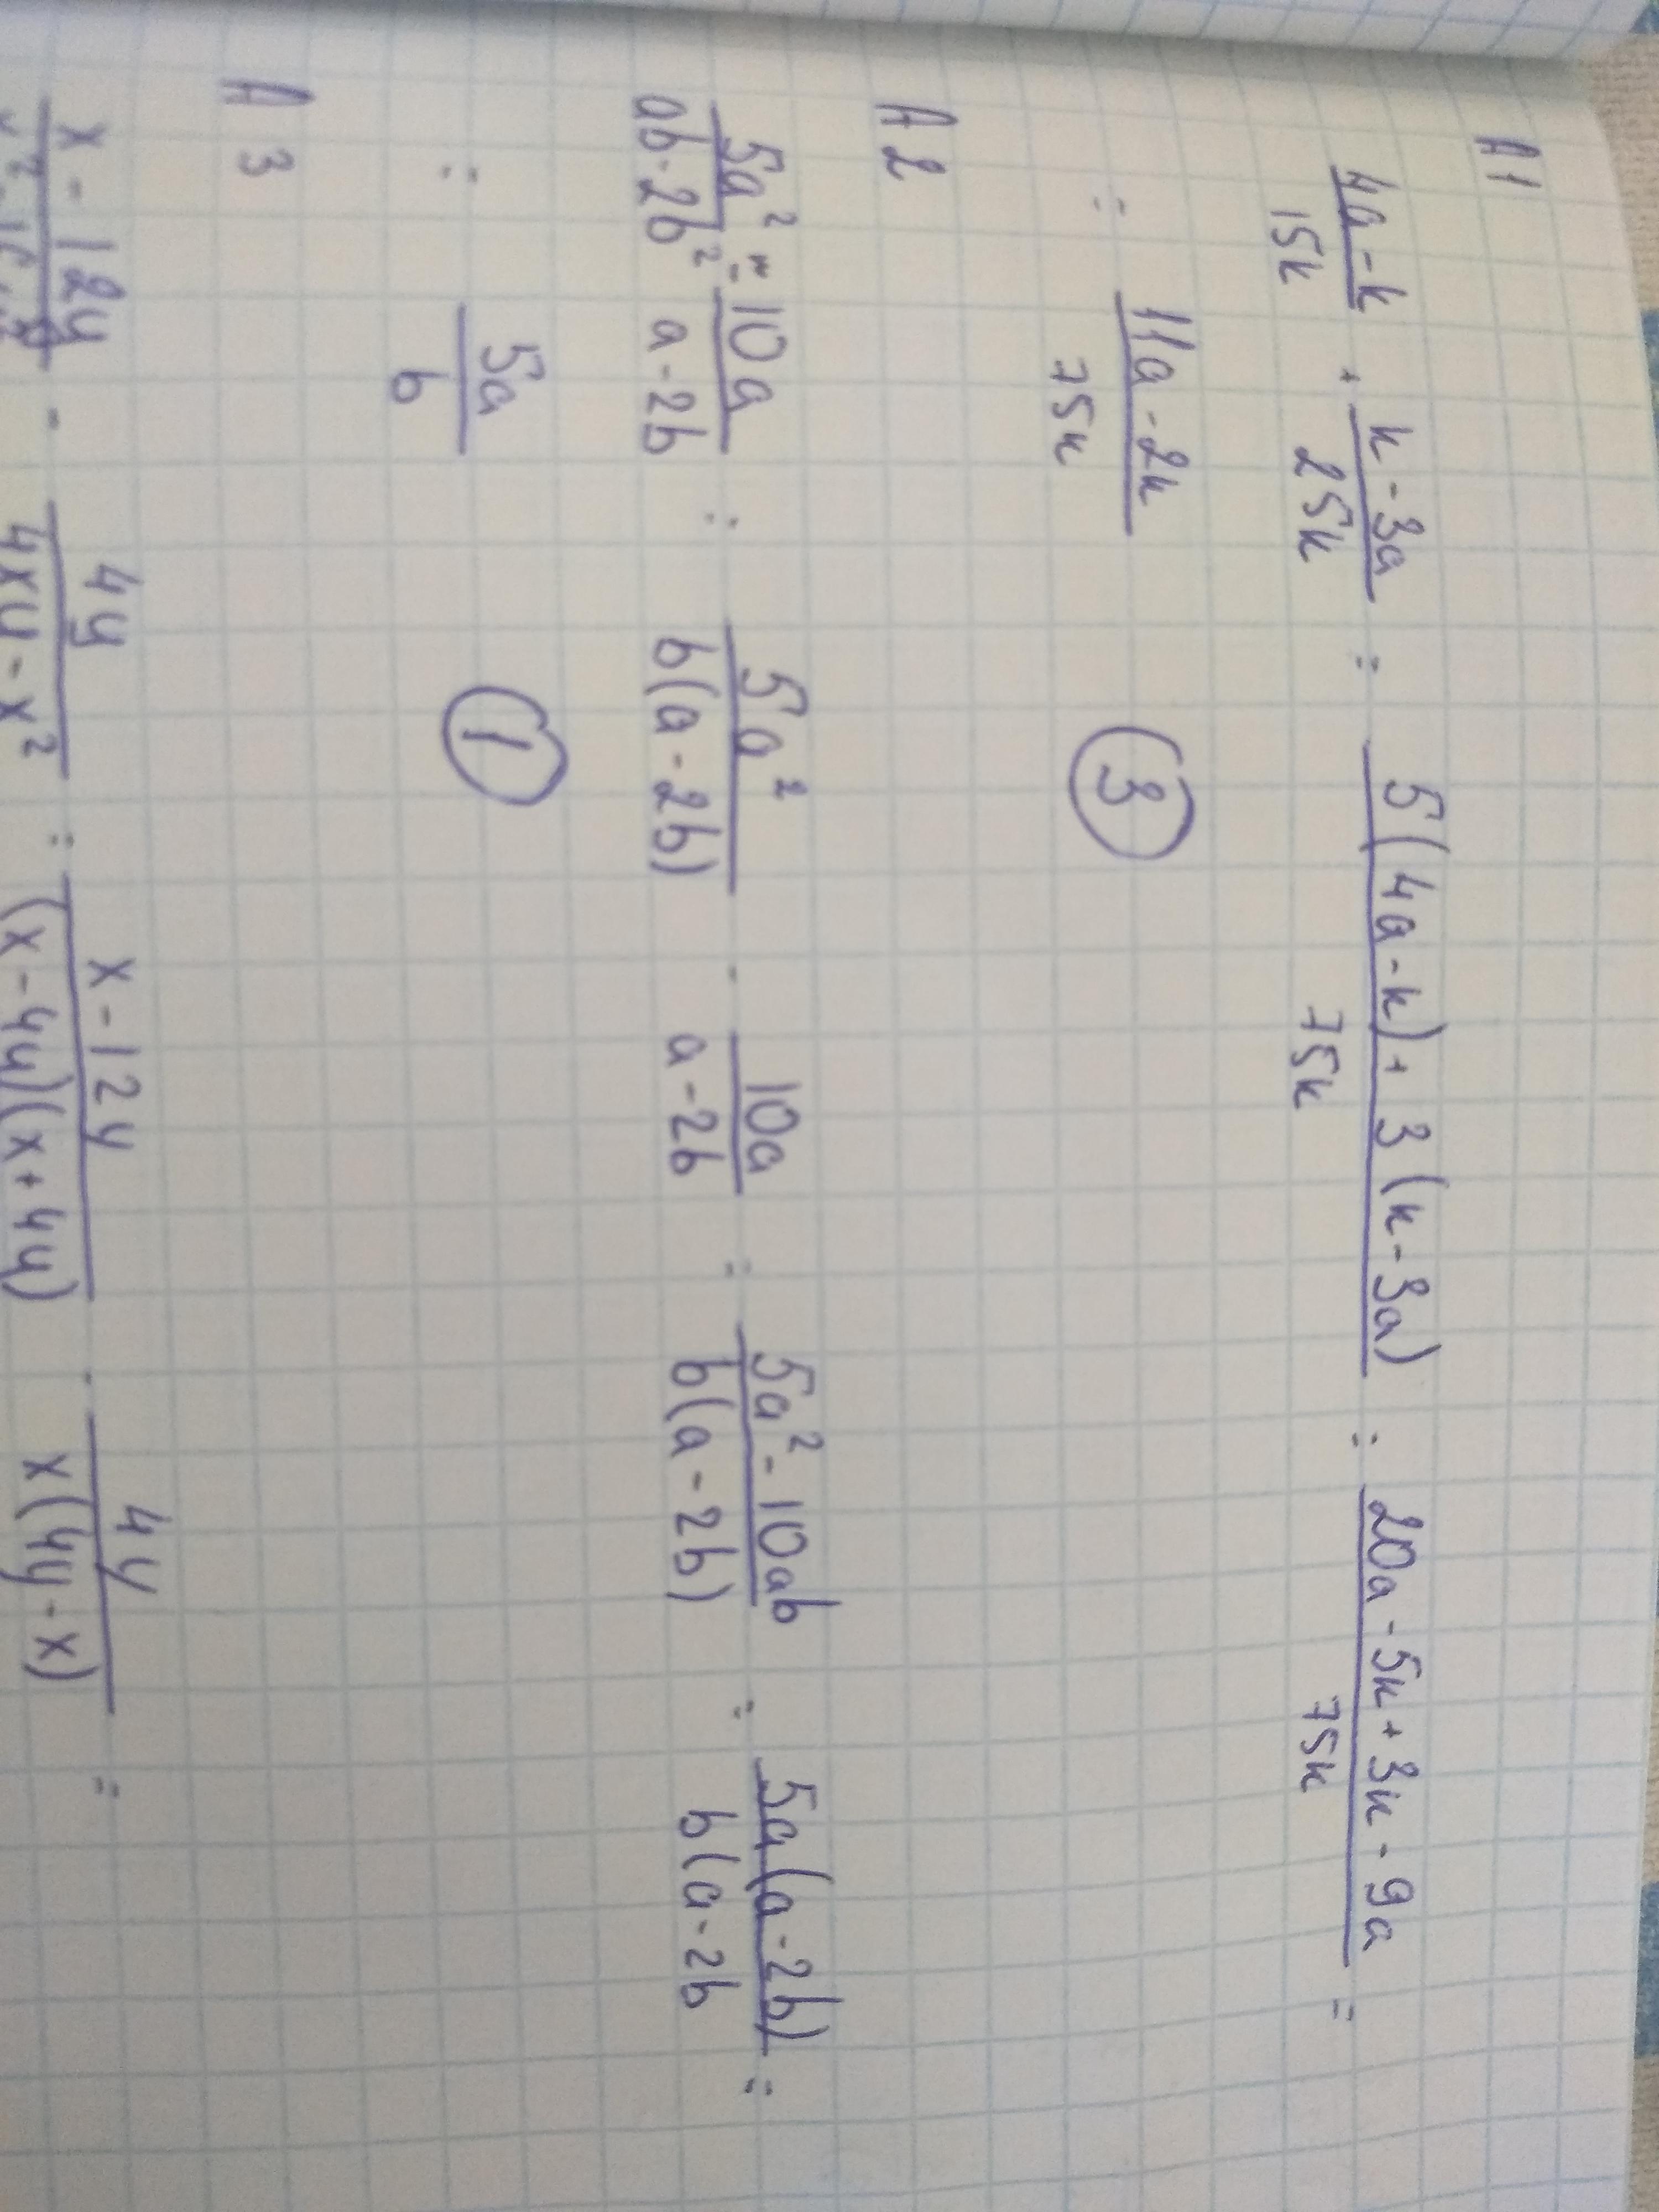 А1
4a-k/15k + k-3a/25k = 5(4a-k)+3(k-3a)/75k = 20a-5k+3k-9a/75k =
= 11a-2k/75k ③
А2
5a²/ab-2b² - 10a/a-2b = 5a²/b(a-2b) - 10a/a-2b = 5a²-10ab/b(a-2b) = 5a(a-2b)/b(a-2b =
= 5a/b ①
А3
x-12y/x²-16y² - 4y/4xy-x² = x-12y/(x-4y)(x+4y) - 4y/x(4y-x) =